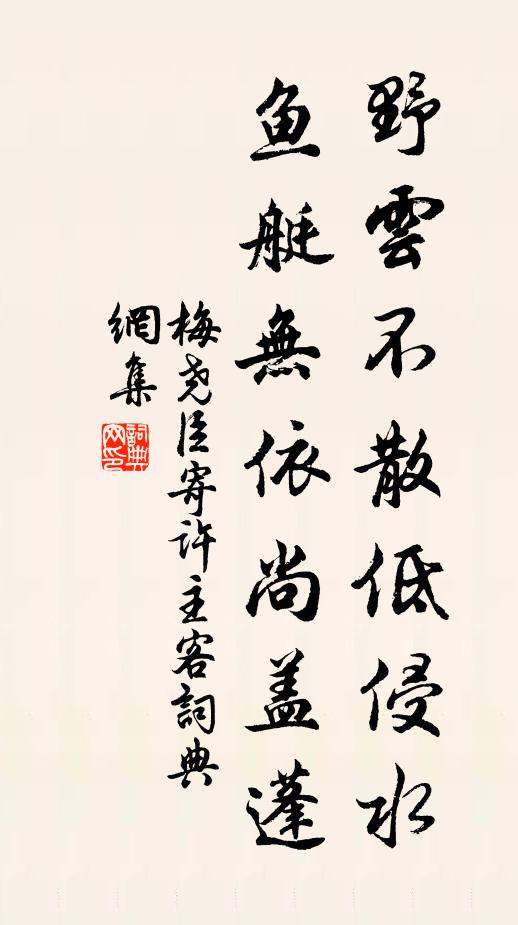 野雲不散低侵水
鱼艇無依尚蓋蓬
梅尧臣寄许主客詞典
網集
詞典
网印